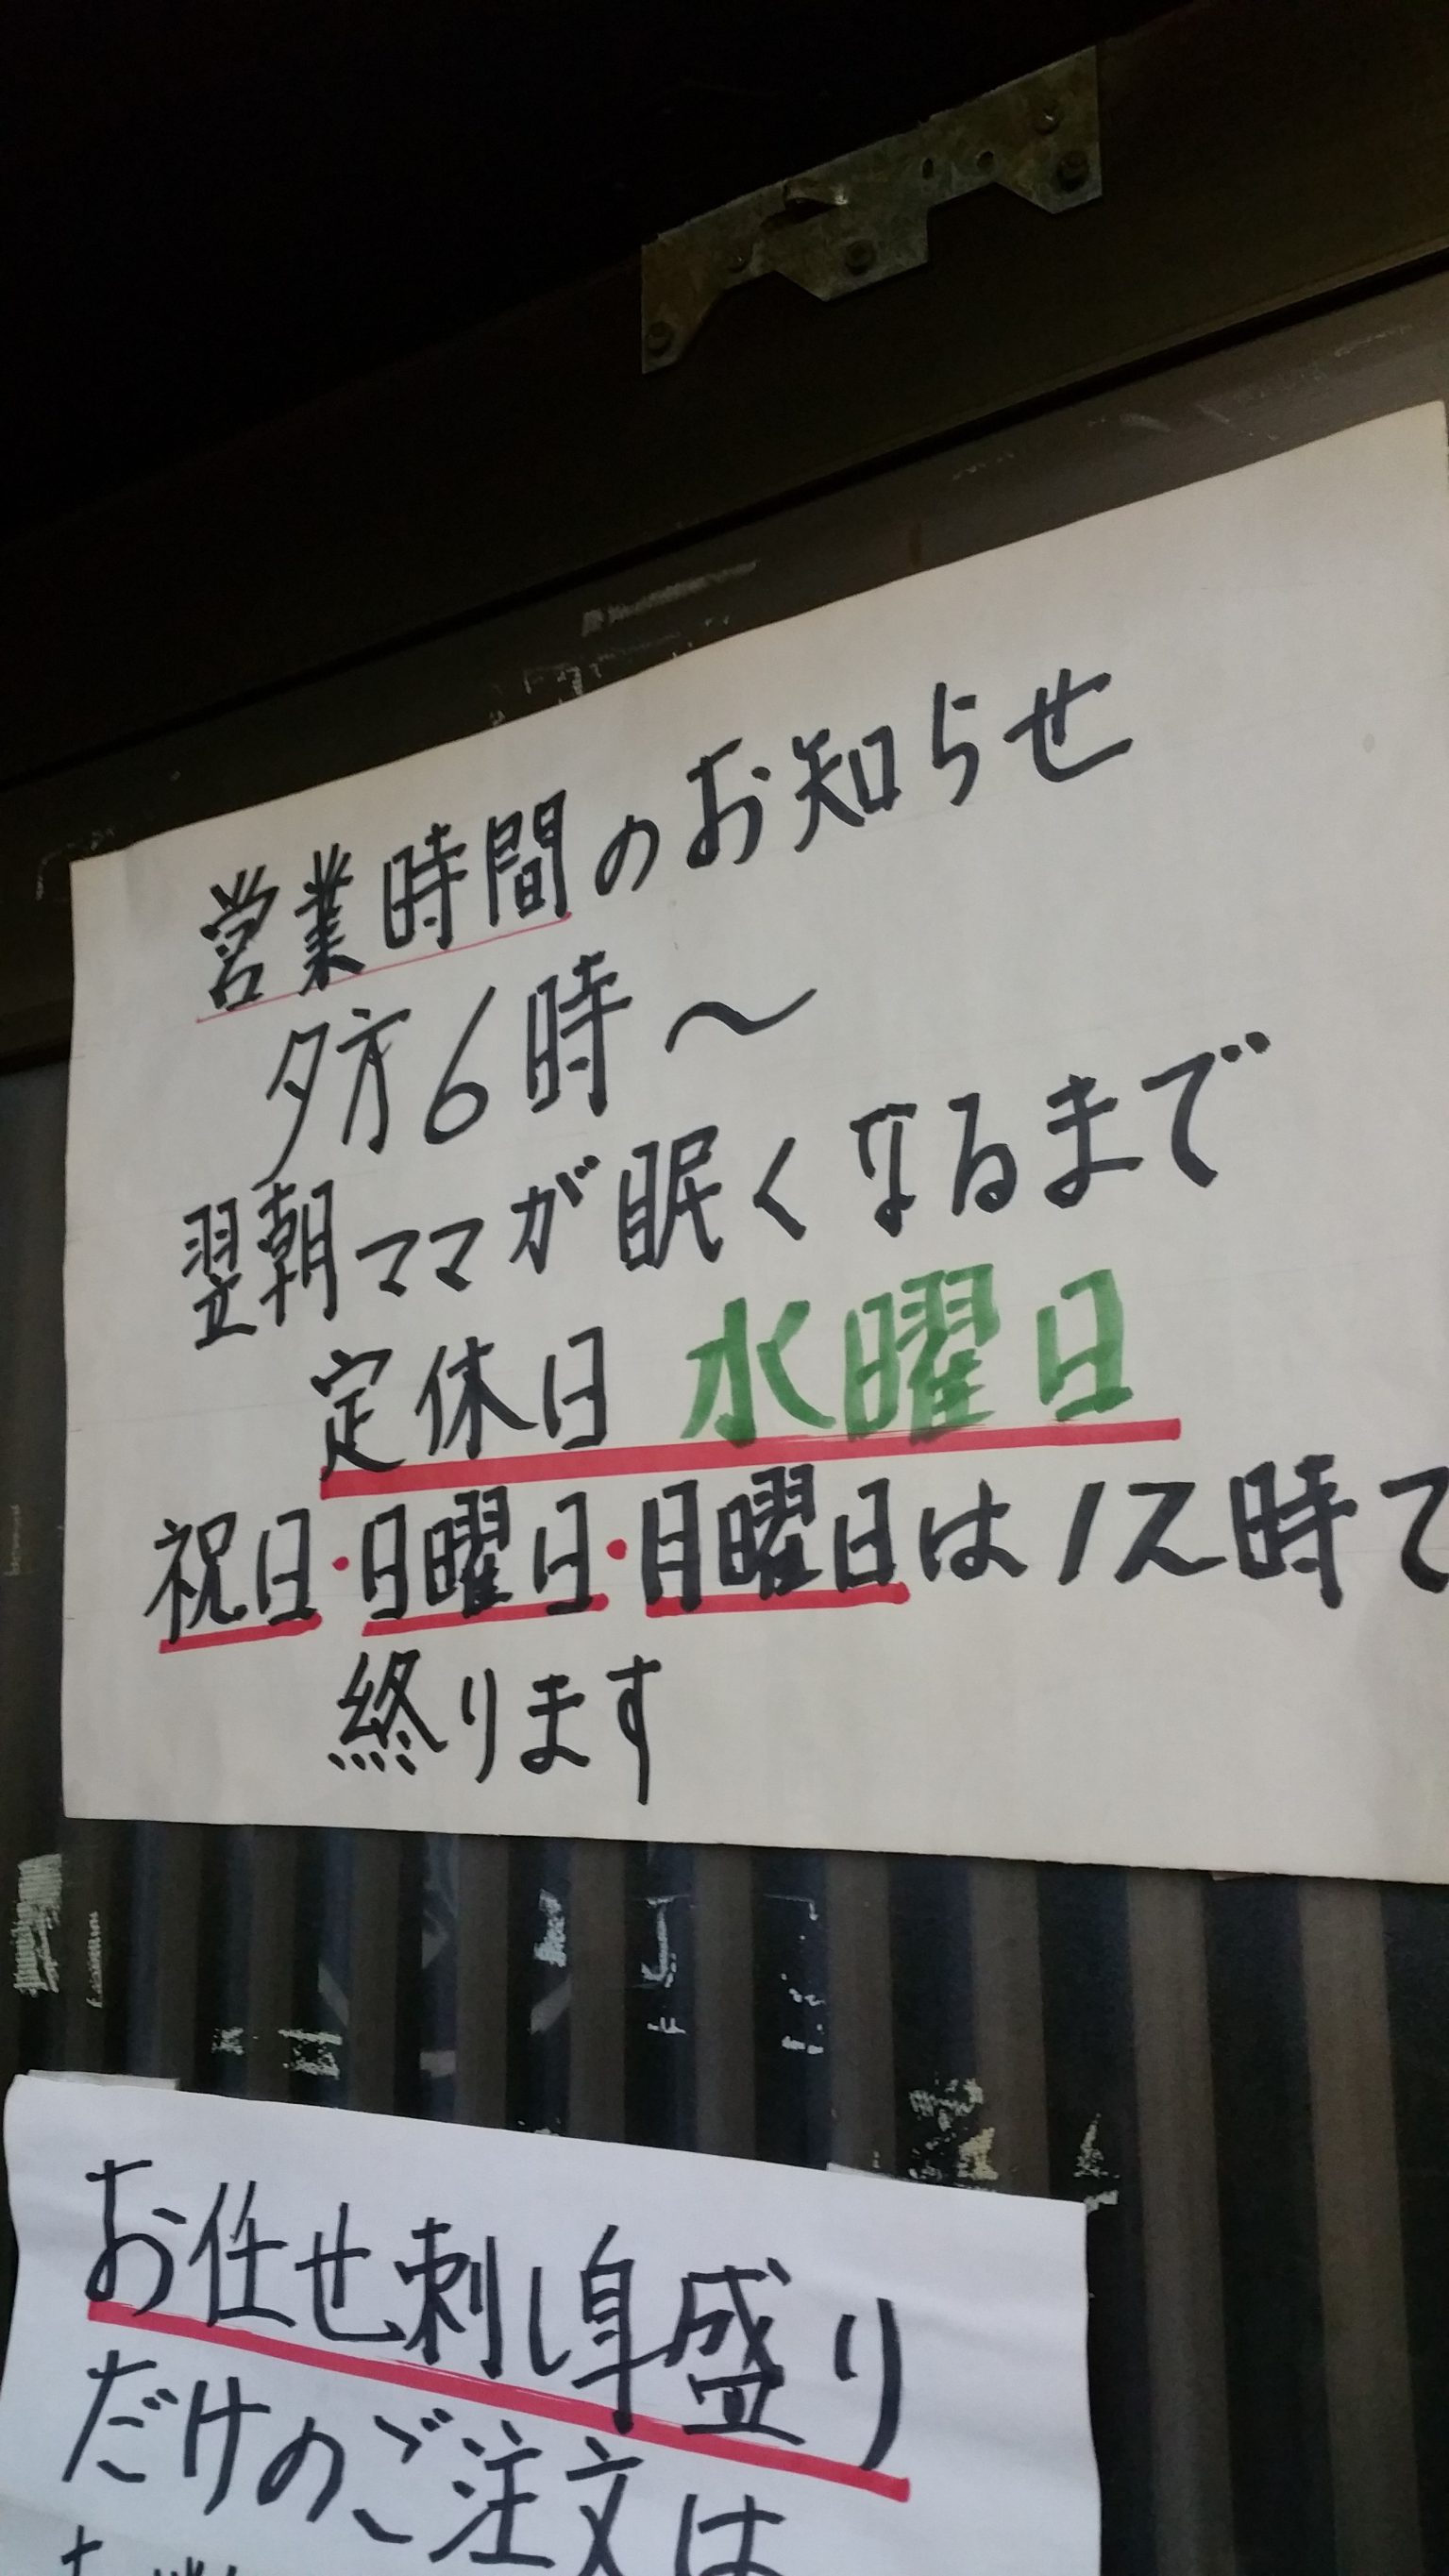 営業時間のお知らせ
夕方6時〜
翌朝ママが眠くなるまで
定休日 水曜日
祝日・日曜日・月曜日は12時で
終ります
お任せ刺し身盛り
だけのご注文は